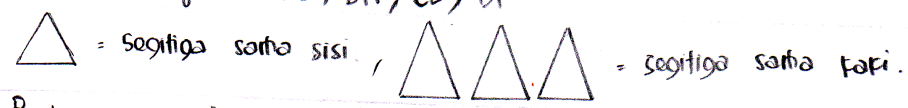 = Segitiga sama sisi , = segitiga sama kaki.